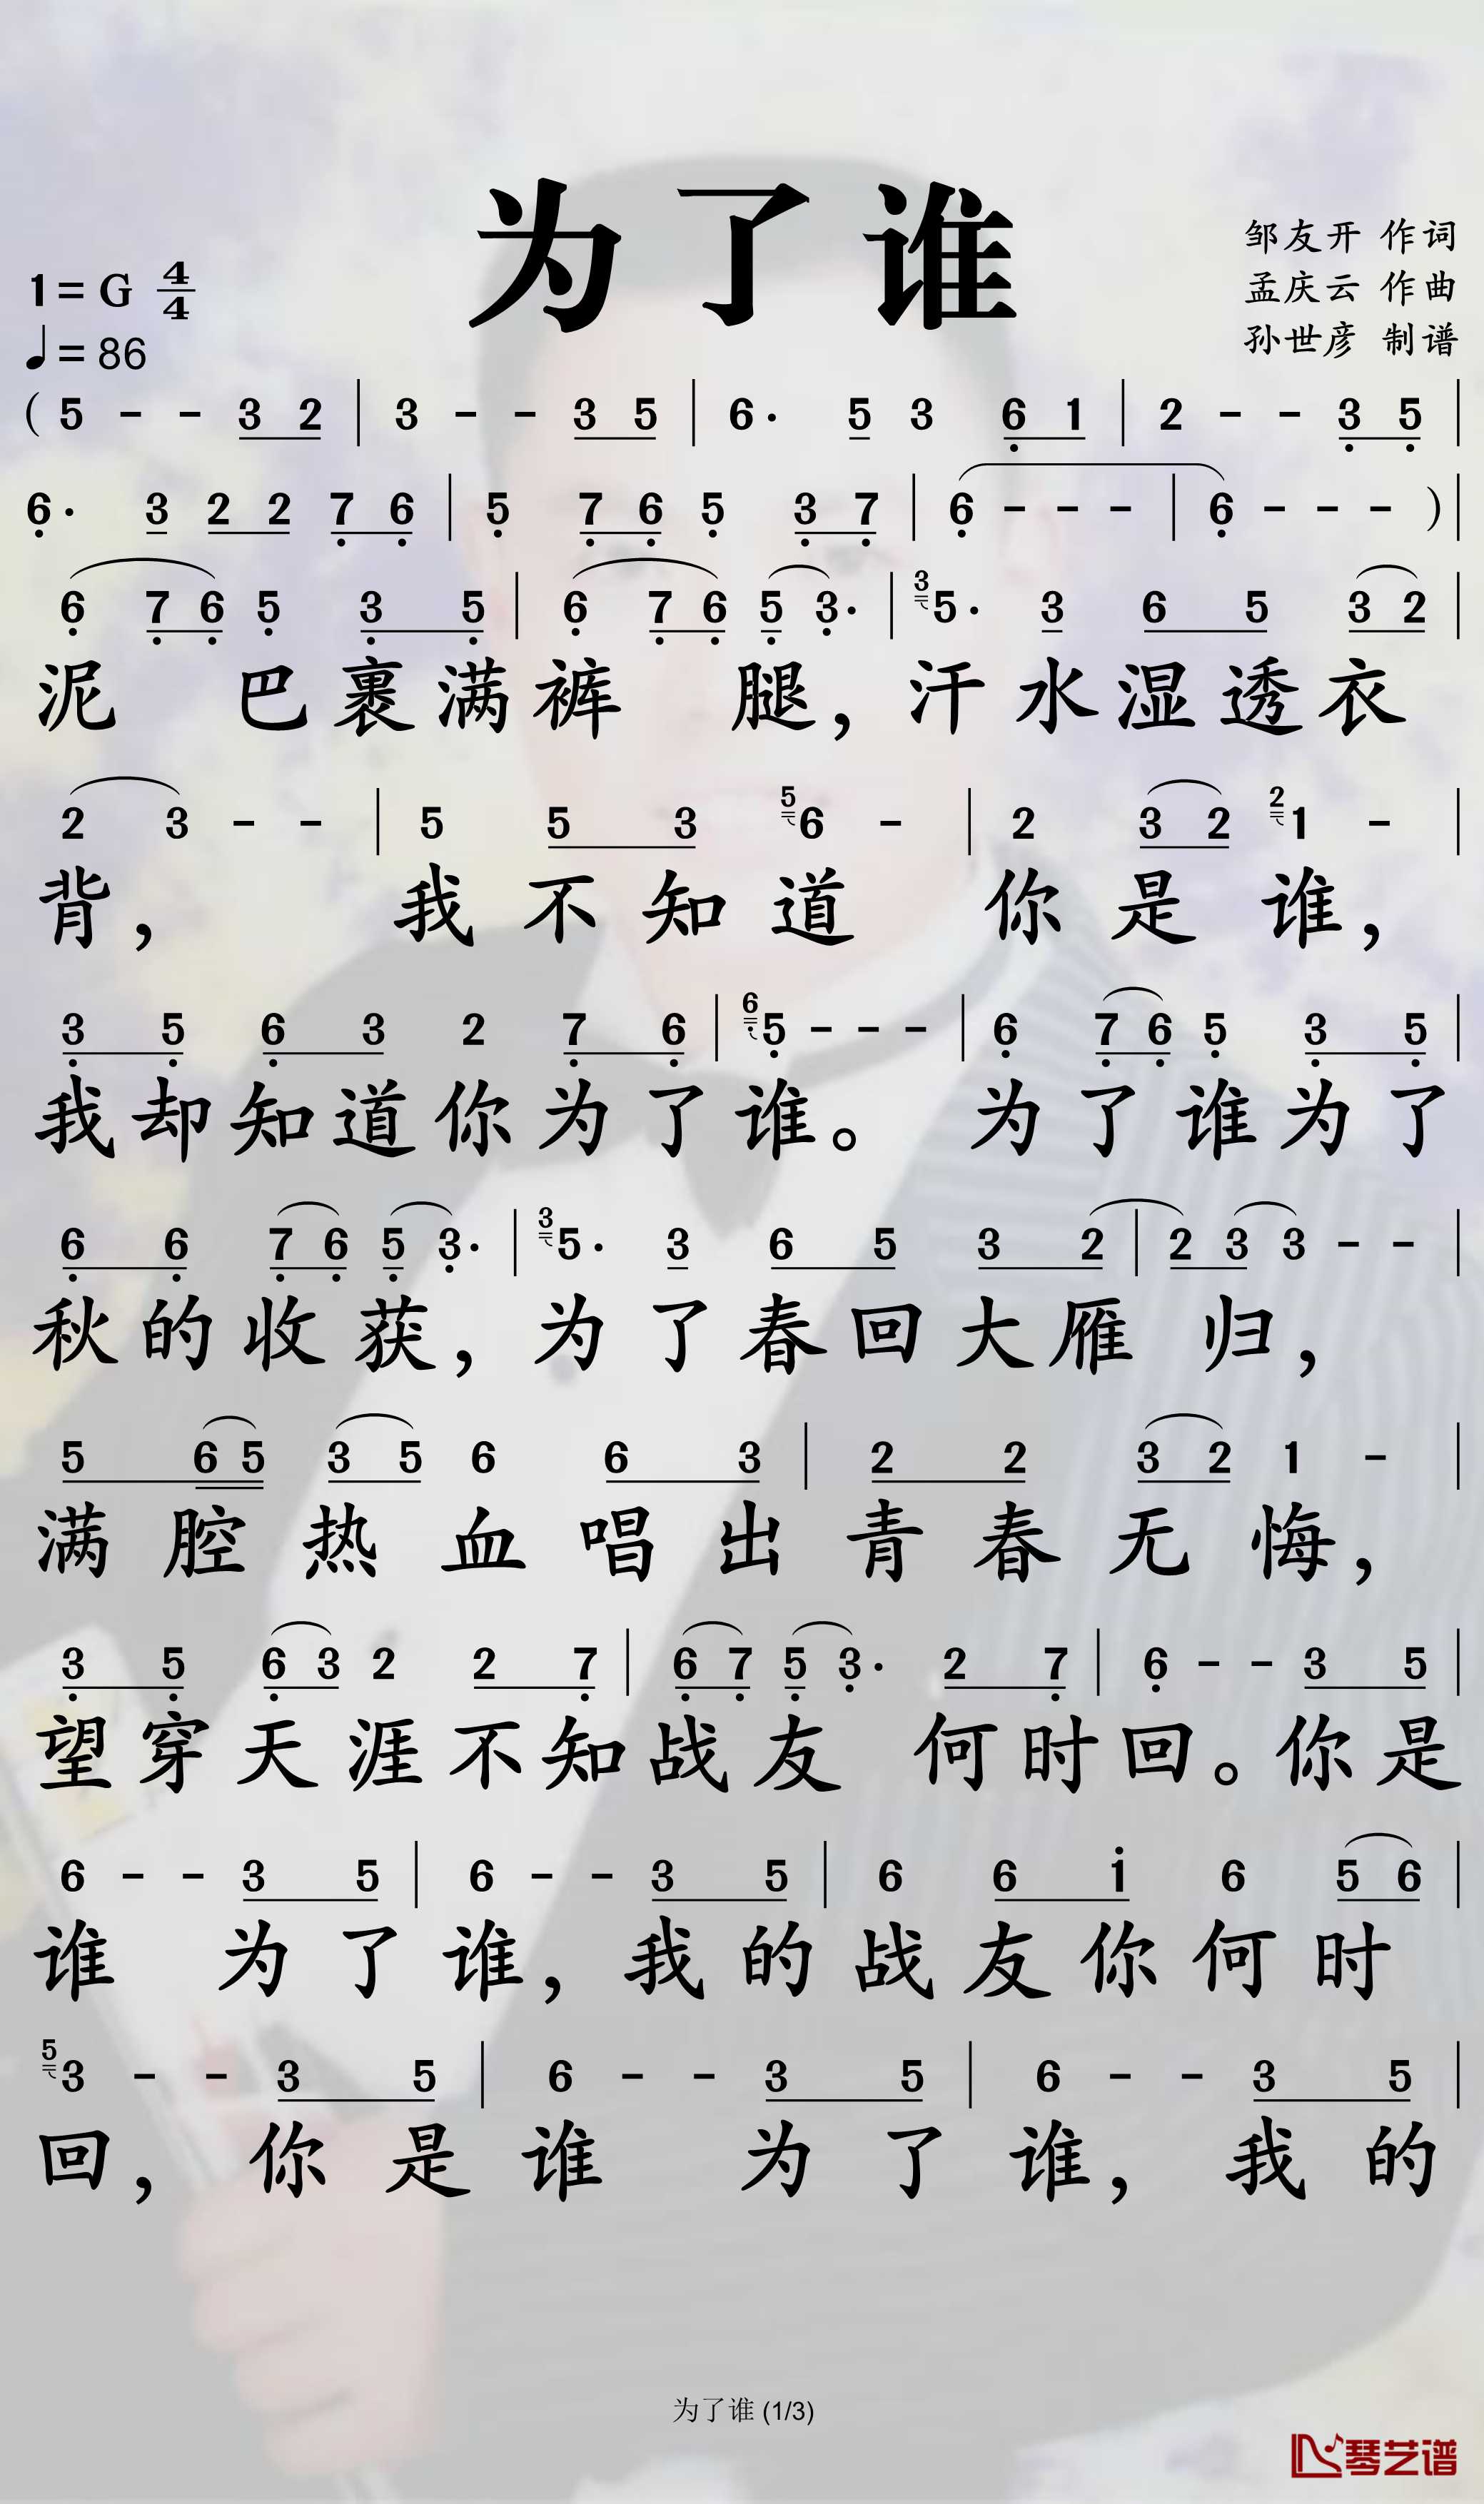 为了谁
邹友开 作词
孟庆云 作曲
孙世彦 制谱
1= G 4/4
♩= 86
( 5 - - 3 2 | 3 - - 3 5 | 6· 5 3 6̣ 1 | 2 - - 3̣ 5̣ |
6̣· 3 2 2 7̣ 6̣ | 5̣ 7̣ 6̣ 5̣ 3̣ 7̣ | 6̣ - - - | 6̣ - - - ) |
6̣ 7̣ 6̣ 5̣ 3̣ 5̣ | 6̣ 7̣ 6̣ 5̣ 3̣· | 3 5· 3 6 5 3 2 |
泥 巴裹满裤 腿，汗水湿透衣
2 3 - - | 5 5 3 5 6 - | 2 3 2 2 1 - |
背， 我不知道 你是谁，
3̣ 5̣ 6̣ 3 2 7̣ 6̣ | 6̣ 5̣ - - - | 6̣ 7̣ 6̣ 5̣ 3̣ 5̣ |
我却知道你为了谁。 为了谁为了
6̣ 6̣ 7̣ 6̣ 5̣ 3̣· | 3 5· 3 6 5 3 2 | 2 3 3 - - |
秋的收获，为了春回大雁 归，
5 6 5 3 5 6 6 3 | 2 2 3 2 1 - |
满腔热血唱出青春无悔，
3̣ 5̣ 6̣ 3 2 2 7̣ | 6̣ 7̣ 5̣ 3̣· 2 7̣ | 6̣ - - 3 5 |
望穿天涯不知战友 何时回。你是
6 - - 3 5 | 6 - - 3 5 | 6 6 i 6 5 6 |
谁 为了谁，我的战友你何时
5 3 - - 3 5 | 6 - - 3 5 | 6 - - 3 5 |
回，你是谁 为了谁，我的
为了谁 (1/3)
琴艺谱